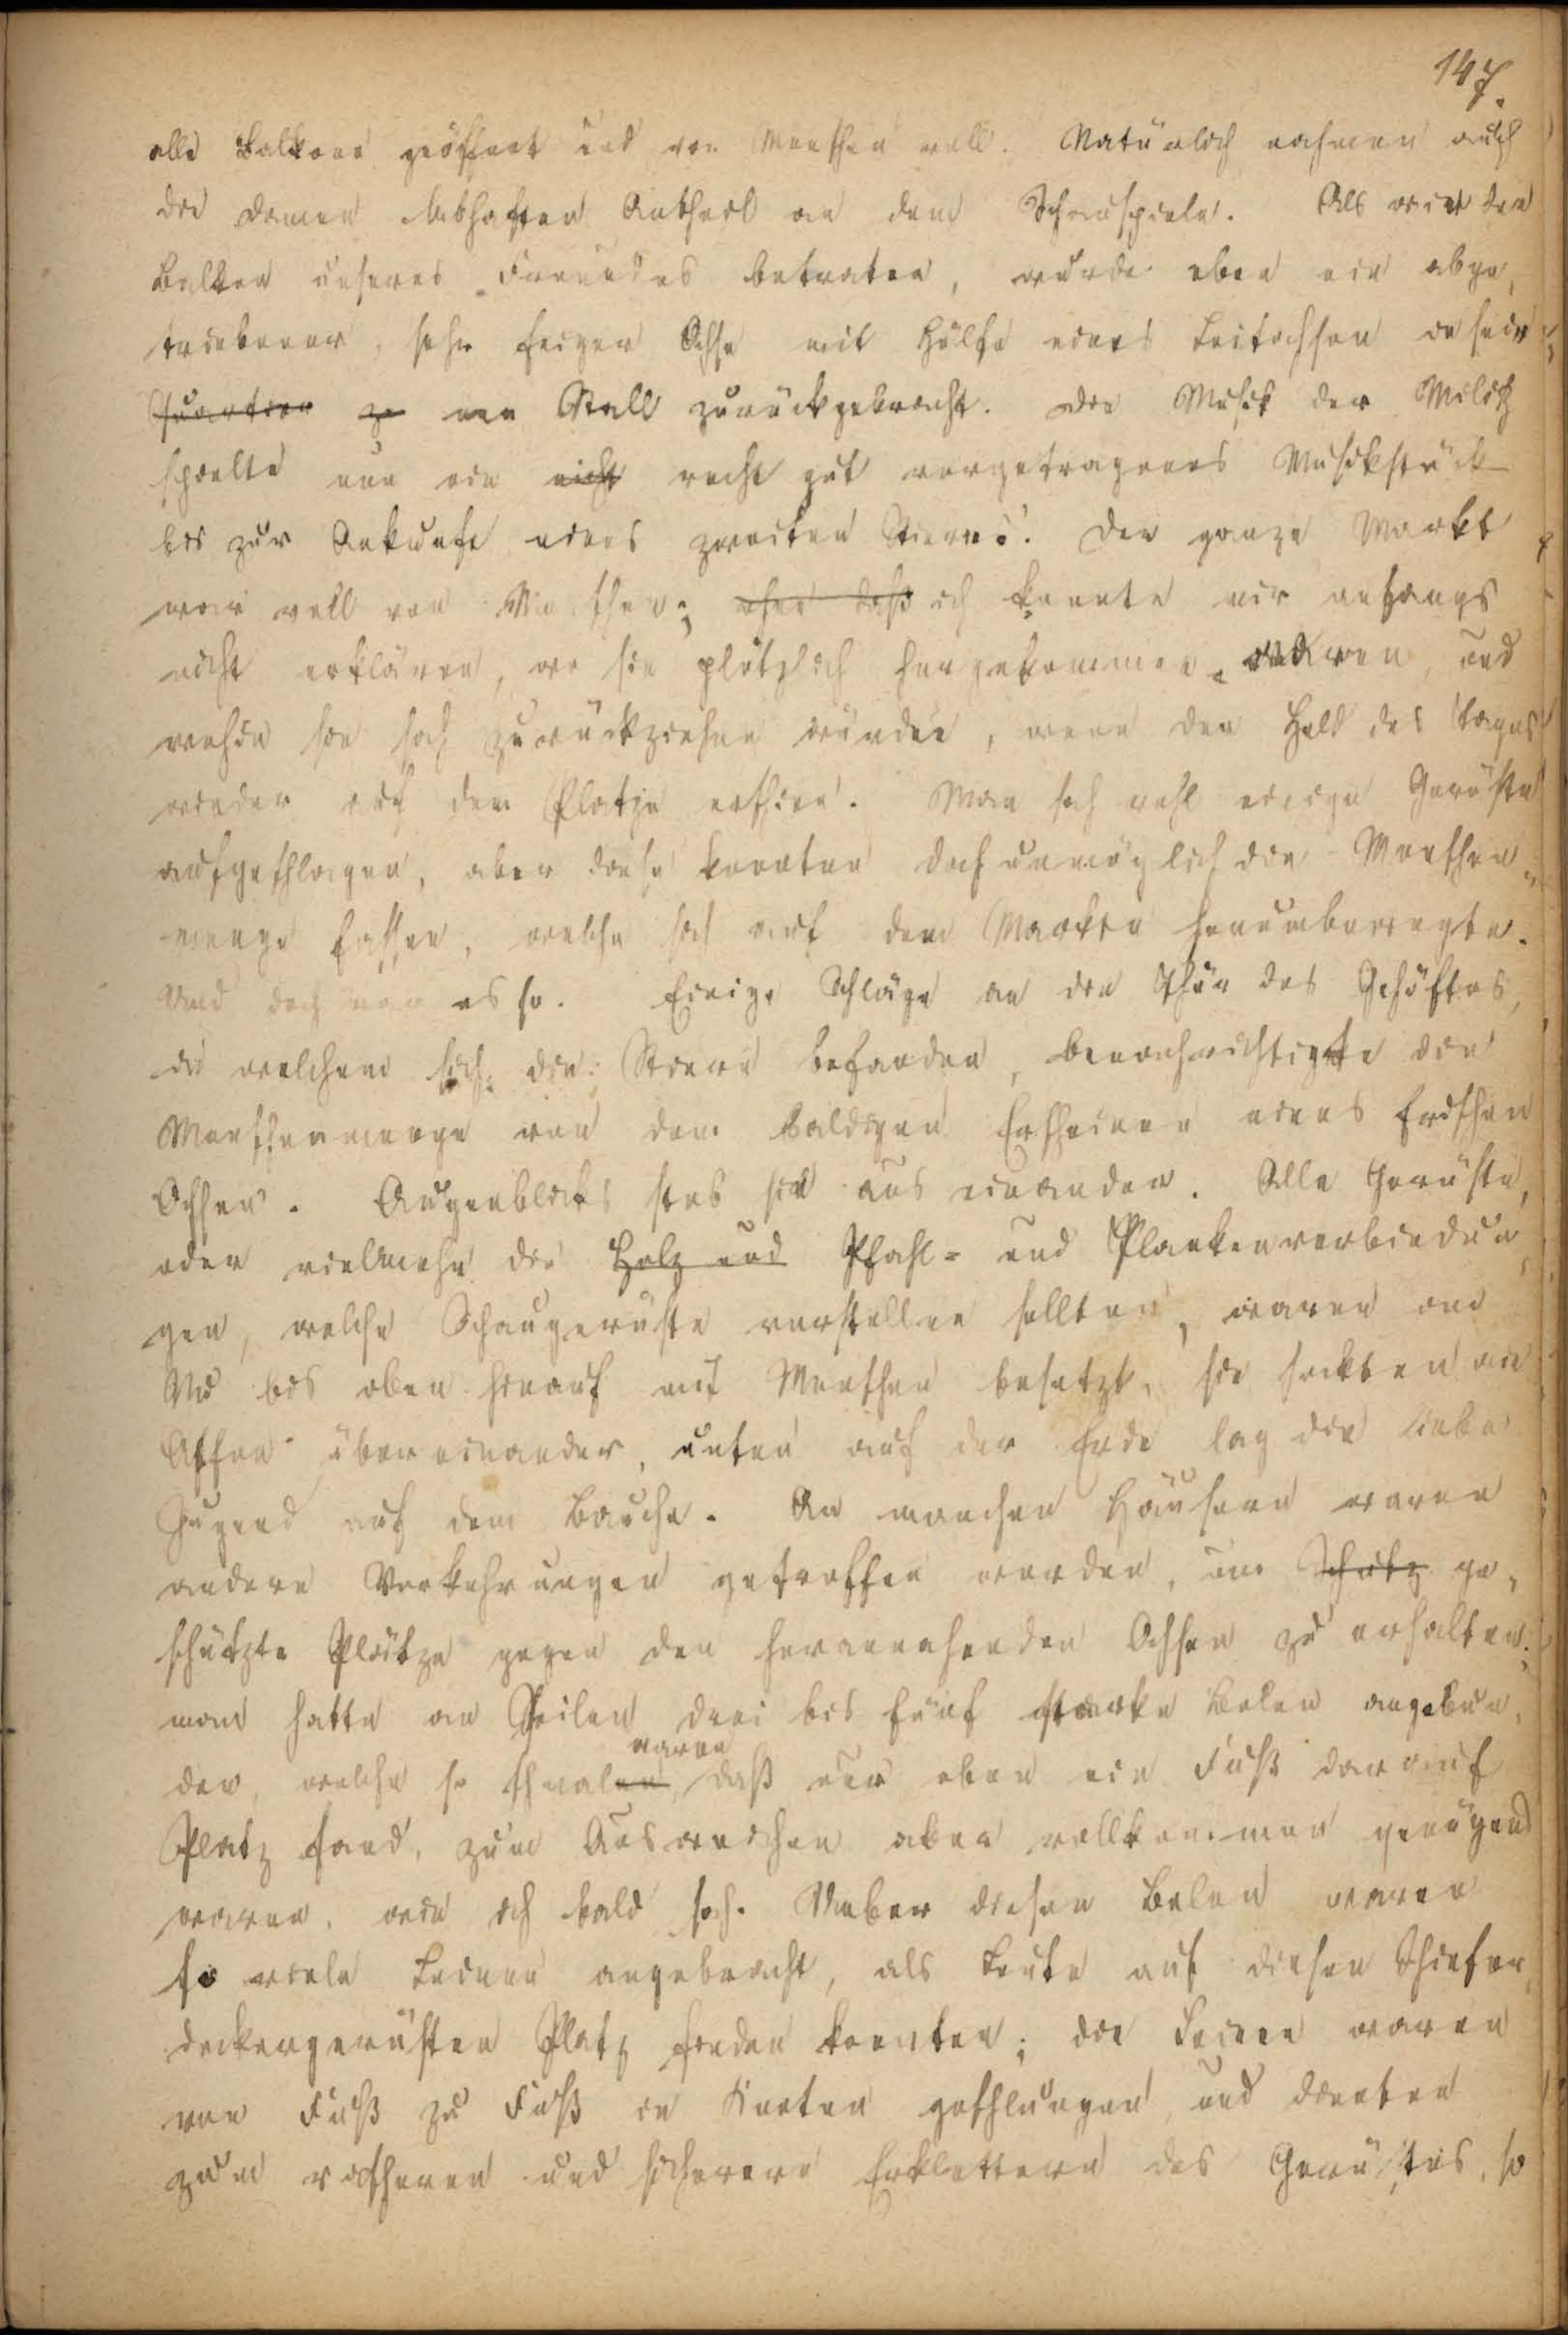 147.
alle Balkone geöffnet und von Menschen voll. Natürlich nahmen auch
die Damen lebhaften Antheil an dem Schauspiele. Als wir den
Balkon unseres Freundes betraten, wurde eben ein abge,
triebener, sehr feiger Ochse mit Hülfe eines Leitochsen in sein
Quartier zu nen Stall zurückgebracht. Die Musik der Miliz
spielte nun ein nicht recht gut vorgetragenes Musikstück
bis zur Ankunft eines zweiten Stieres. Der ganze Markt
war voll von Menschen; ohne daß ich konnte mir anfangs
nicht erklären, wo sie plötzlich hergekommen waren, und
wohin sie sich zurückziehen würden, wenn der Held des Tages
wieder auf dem Platze erschien. Man sah wohl einige Gerüste
aufgeschlagen, aber diese konnten doch unmöglich die Menschen,
menge fassen, welche sich auf dem Markte herumbewegte.
Und doch war es so. Einige Schläge an die Thür des Gehöftes,
in welchem sich die Stiere befanden, benachrichtigte die
Menschenmenge von dem baldigen Erscheinen eines frischen
Ochsen. Augenblicks stob sie aus einander. Alle Gerüste,
oder vielmehr die Holz und Pfahl- und Plankenverbindun,
gen, welche Schaugerüste vorstellen sollten, waren im
Nu bis oben hinauf mit Menschen besetzt, sie hockten wie
Affen über einander, unten auf der Erde lag die liebe
Jugend auf dem Bauche. An manchen Häusern waren
andere Vorkehrungen getroffen worden, um Schutz ge,
schützte Plätze gegen den herannahenden Ochsen zu erhalten;
man hatte an Seilen drei bis fünf starke Bolen angebun,
den, welche so schmalen waren daß nur eben ein Fuß darauf
Platz fand, zum Ausweichen aber vollkommen genügend
waren, wie ich bald sah. Ueber diesen Bolen waren
so viele Leinen angebracht, als Leute auf diesen Schiefer,
deckergerüsten Platz finden konnten; die Leinen waren
von Fuß zu Fuß in Knoten geschlungen und dienten
zum rascheren und sicheren Erklettern des Gerüstes, so